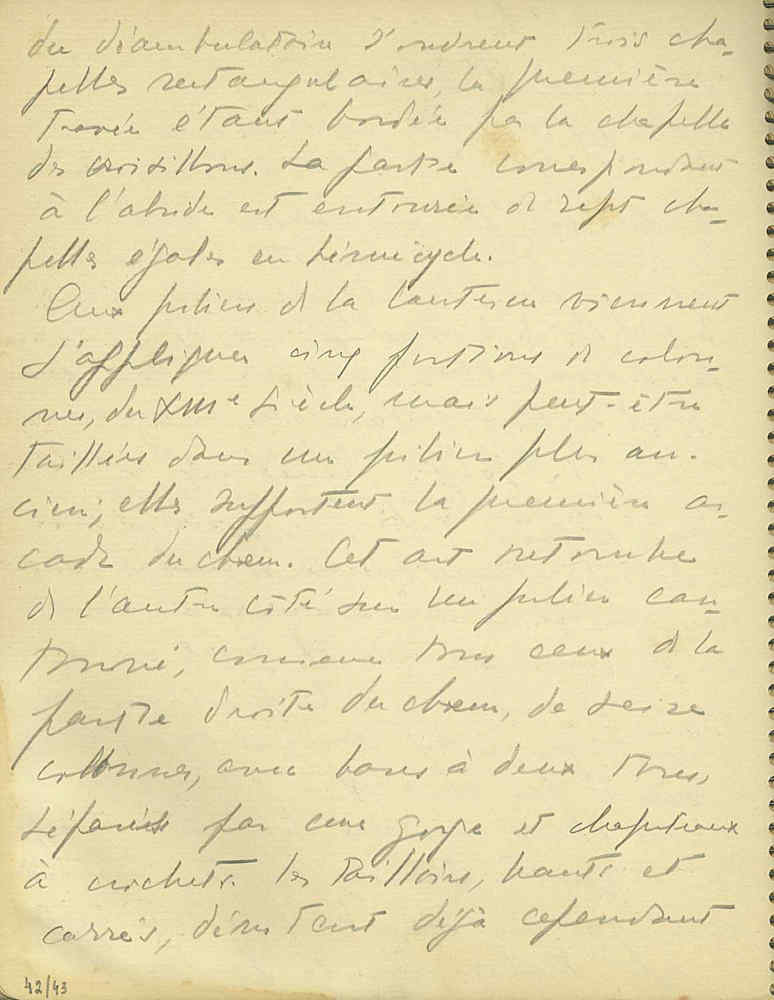 du déambulatoire s'ouvrent trois cha-
pelles rectangulaires, la première
travée étant bordée par la chapelle
des croisillons. La partie correspondant
à l'abside est entourée de sept cha-
pelles égales en hémicycle.
Aux piliers de la lanterne viennent
s'appliquer cinq portions de colon-
nes, du XIIIe siècle, mais peut-être
taillées dans un pilier plus an-
cien; elles supportent la première ar-
cade du chœur. Cet arc retombe
de l'autre côté sur un pilier can-
tonné, comme tous ceux de la
partie droite du chœur, de seize
colonnes, avec bases à deux tores,
séparés par une gorge et chapiteaux
à crochets. les tailloirs, hauts et
carrés, déjà cependant
42/43